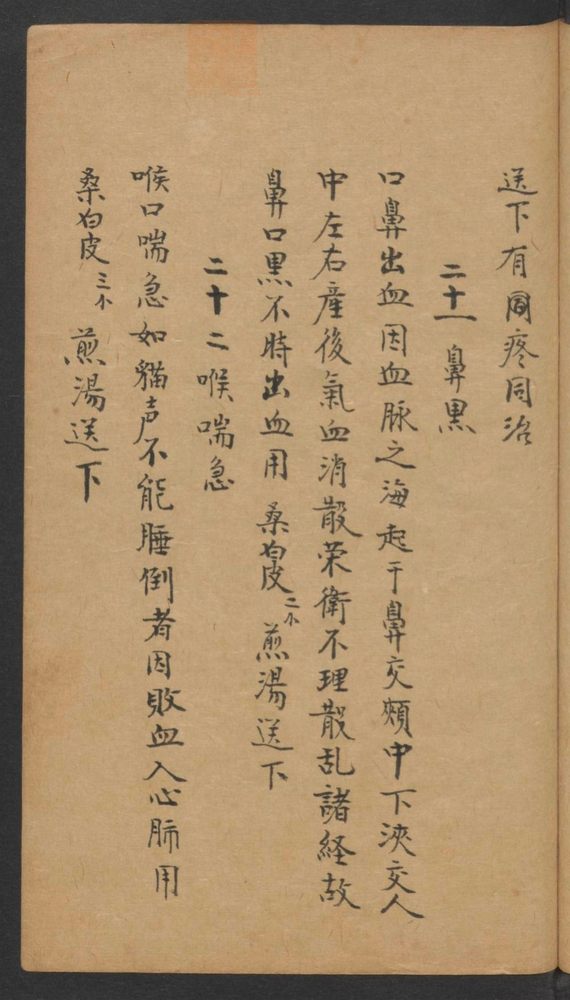 送下有同疼同治
二十一 鼻黒
口鼻出血因血脉之海起于鼻交頞中下浹交人
中左右產後氣血消散荣衛不理散乱諸経故
鼻口黒不時出血用桑白皮二小煎湯送下
二十二喉喘急
喉口喘急如貓声不能睡倒者因敗血入心肺用
桑白皮三小煎湯送下